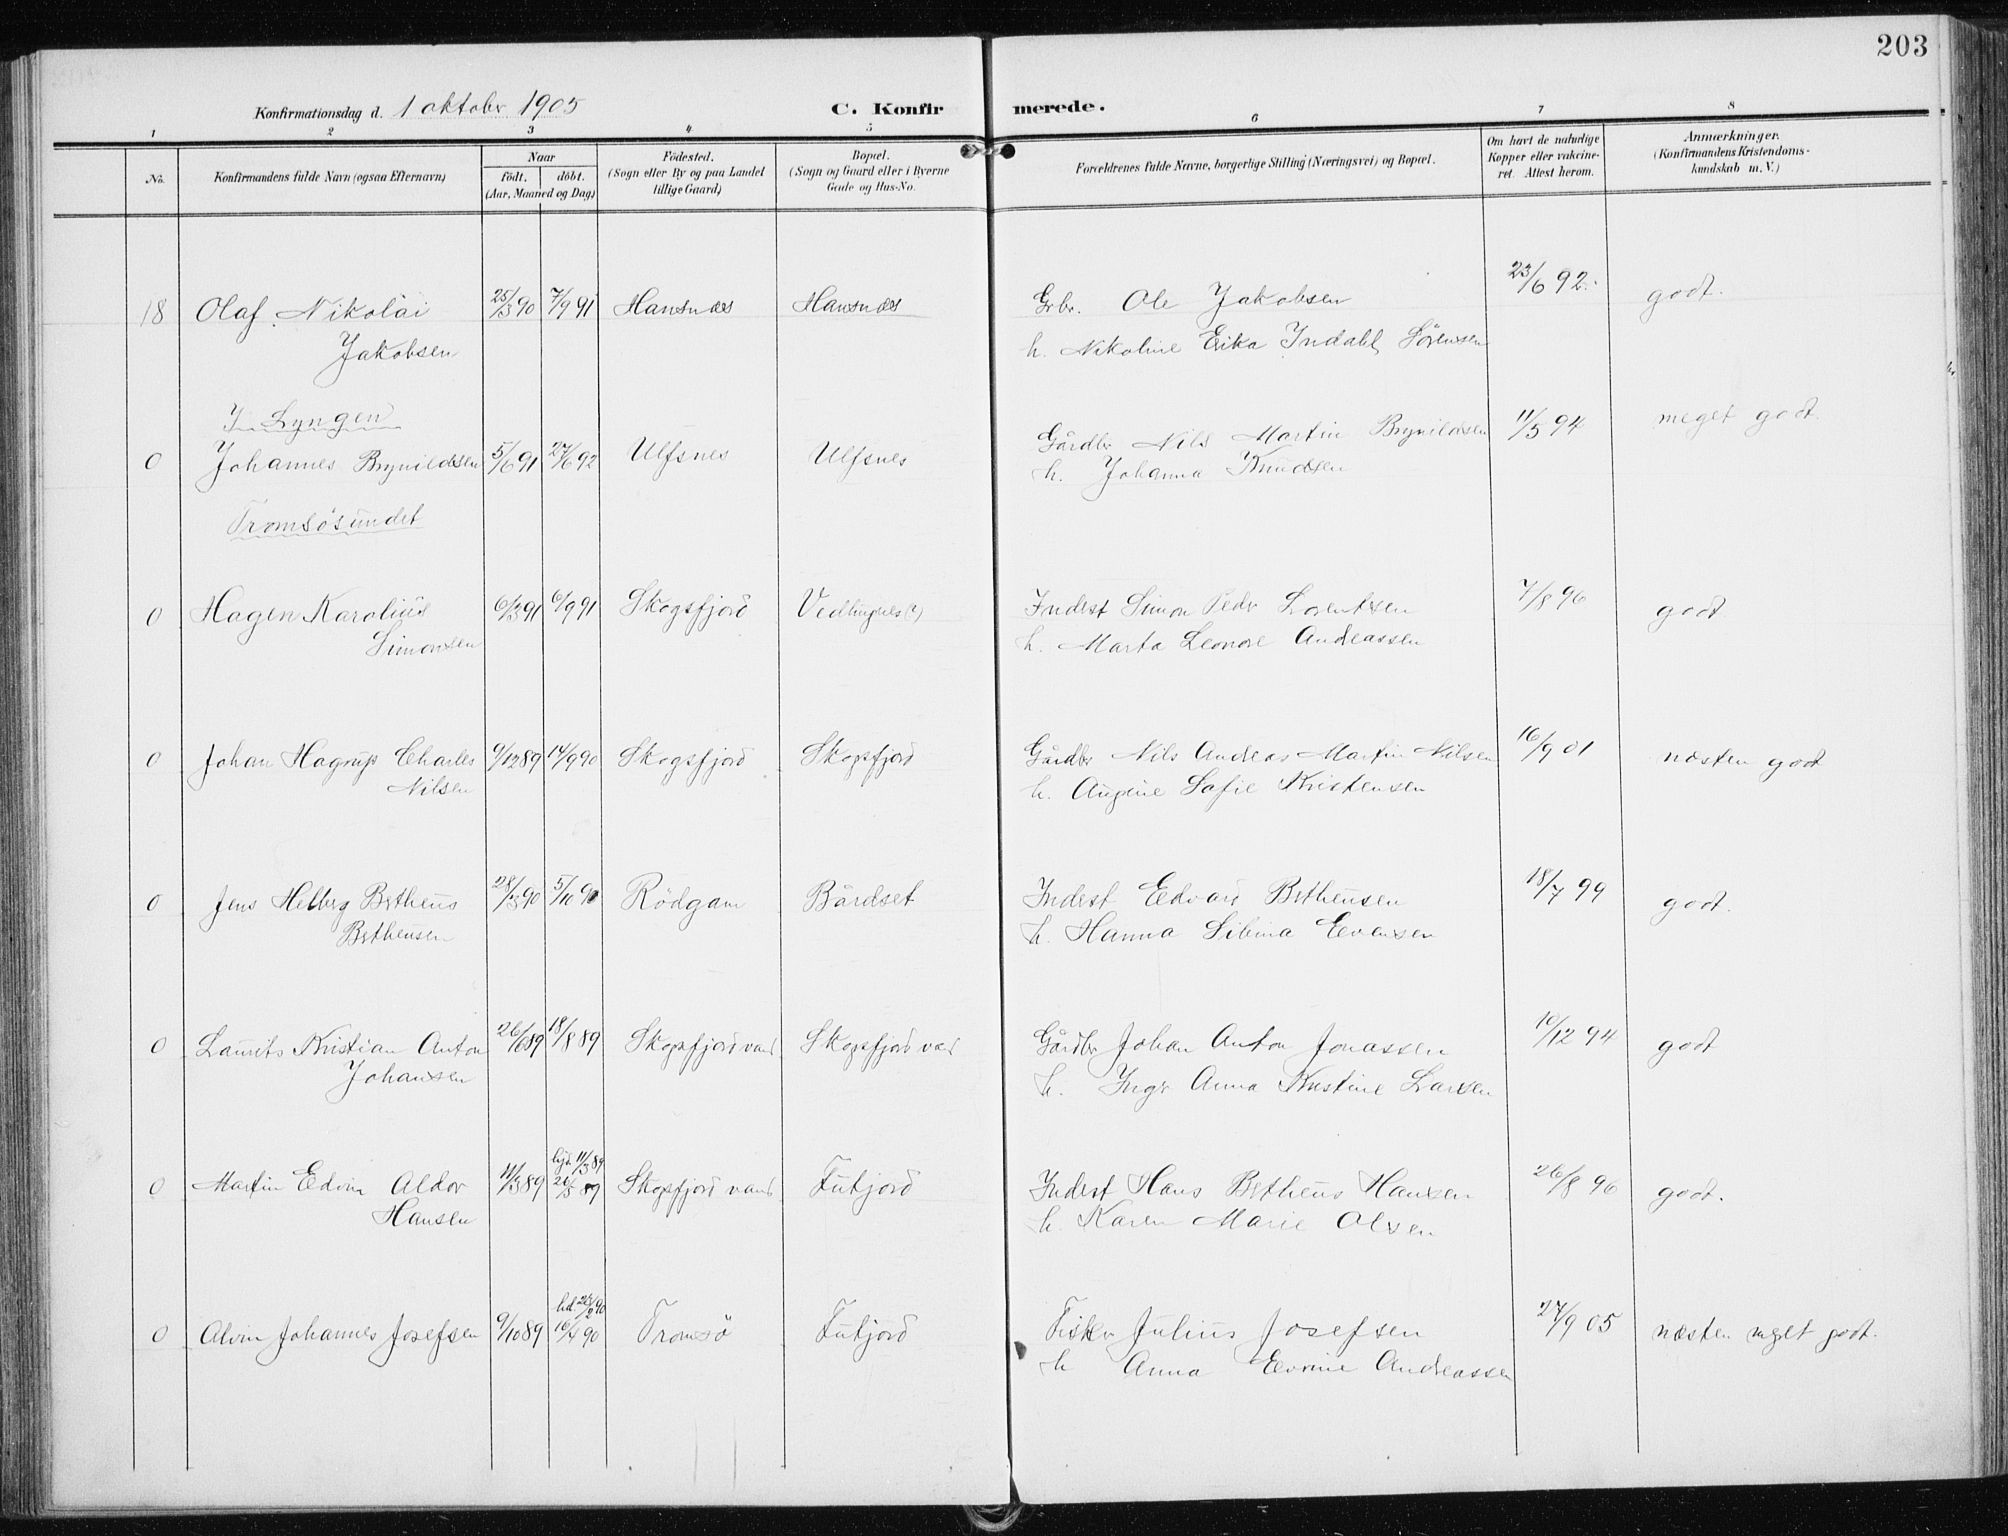 203
Konfirmationsdag d. 1 oktober 1905 C. Konfir merede.
1 2 3 4 5 6 7 8
No. Konfirmandens fulde Navn (ogsaa Efternavn) Naar födt. döbt. (Aar, Maaned og Dag) Födested. (Sogn eller By og paa Landet tillige Gaard) Bopæl. (Sogn og Gaard eller i Byerne Gade og Hus-No. Forældrenes fulde Navne, borgerlige Stilling (Næringsvei) og Bopæl. Om havt de naturlige Kopper eller vakcineret. Attest herom. Anmærkninger. (Konfirmandens Kristendomskundskab m. V.)
18 Olaf Nikolai 25/3 90 7/9 91 Hansnæs Hansnæs Grbr. Ole Jakobsen 23/6 92. godt.
Jakobsen h. Nikoline Erika Indahl Sørensen
I Lyngen
0 Johannes Brynildsen 5/6 91 27/6 92 Ulfsnes Ulfsnes Gårdbr Nils Martin Brynildsen 11/5 94 meget godt.
h. Johanna Knudsen
Tromsösundet
0 Hagen Karolius 6/3 91 6/9 91 Skogsfjord Vedtingnes(?) Inderst Simon Peder Lorentsen 7/8 96 godt
Simonsen h. Marta Leonore Andreassen
0 Johan Hagrup Charles 9/12 89 14/9 90 Skogsfjord Skogsfjord Gårdbr Nils Andreas Martin Nilsen 16/9 01 næsten godt
Nilsen h. Augine Sofie Kristensen
0 Jens Helberg Betheus 28/3 90 5/10 90 Rödgam Bårdset Inderst Edvard Betheusen 18/7 99 godt.
Betheusen h. Hanna Sibina Evensen
0 Laurits Kristian Anton 26/6 89 18/8 89 Skogsfjord vand Skogsfjord vand Gårdbr Johan Anton Jonassen 10/12 94 godt
Johansen h. Inger Anna Kristine Larsen
0 Martin Edvin Aldor 11/3 89 hjd. 11/3 89 26/5 89 Skogsfjord vand Futjord Inderst Hans Betheus Hansen 26/8 96 godt.
Hansen h. Karen Marie Olsen
0 Alvin Johannes Josefsen 9/10 89 hd. 26/2 90 16/4 90 Tromsö Futjord Fisker Julius Josefsen 27/9 05 næsten meget godt.
h Anna Evrine Andreassen